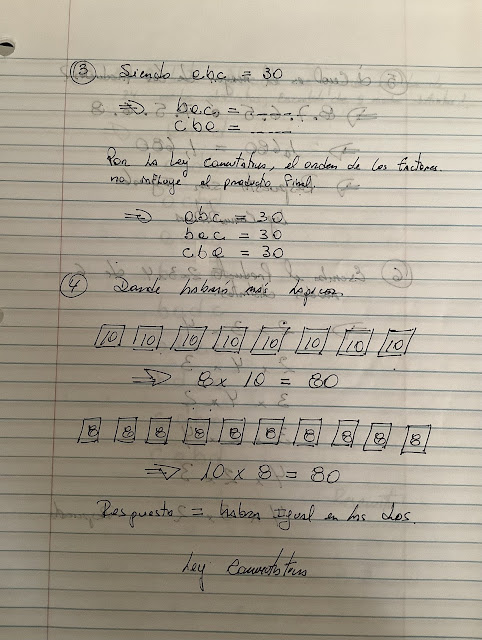 ③ Siendo abc = 30
⇒ bac = ----
cba = ----
Por la Ley conmutativa, el orden de los factores
no influye el producto final.
⇒ abc = 30
bac = 30
cba = 30
④ Donde habrá más lapices
10 10 10 10 10 10 10 10
⇒ 8 x 10 = 80
8 8 8 8 8 8 8 8 8 8
⇒ 10 x 8 = 80
Respuesta = habra Igual en las dos.
Ley Conmutativa